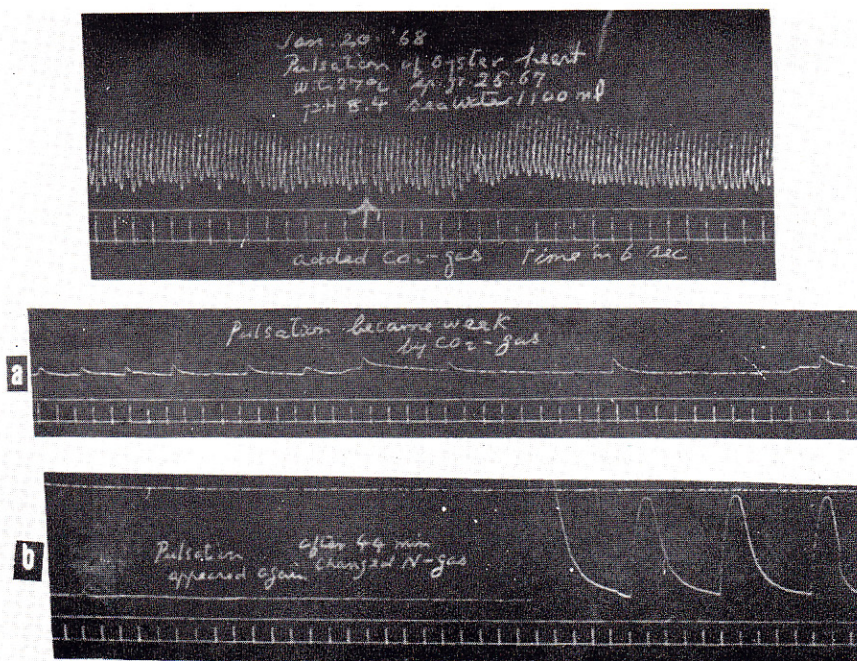 Jan. 20. '68
Pulsation of oyster heart
W.C. 27°C. Sp. gr. 25.67
pH 8.4 Sea water 1100 ml
added CO₂-gas Time in 6 sec.
Pulsation became week
by CO₂-gas
a
b
Pulsation after 44 min
appeared again changed N-gas